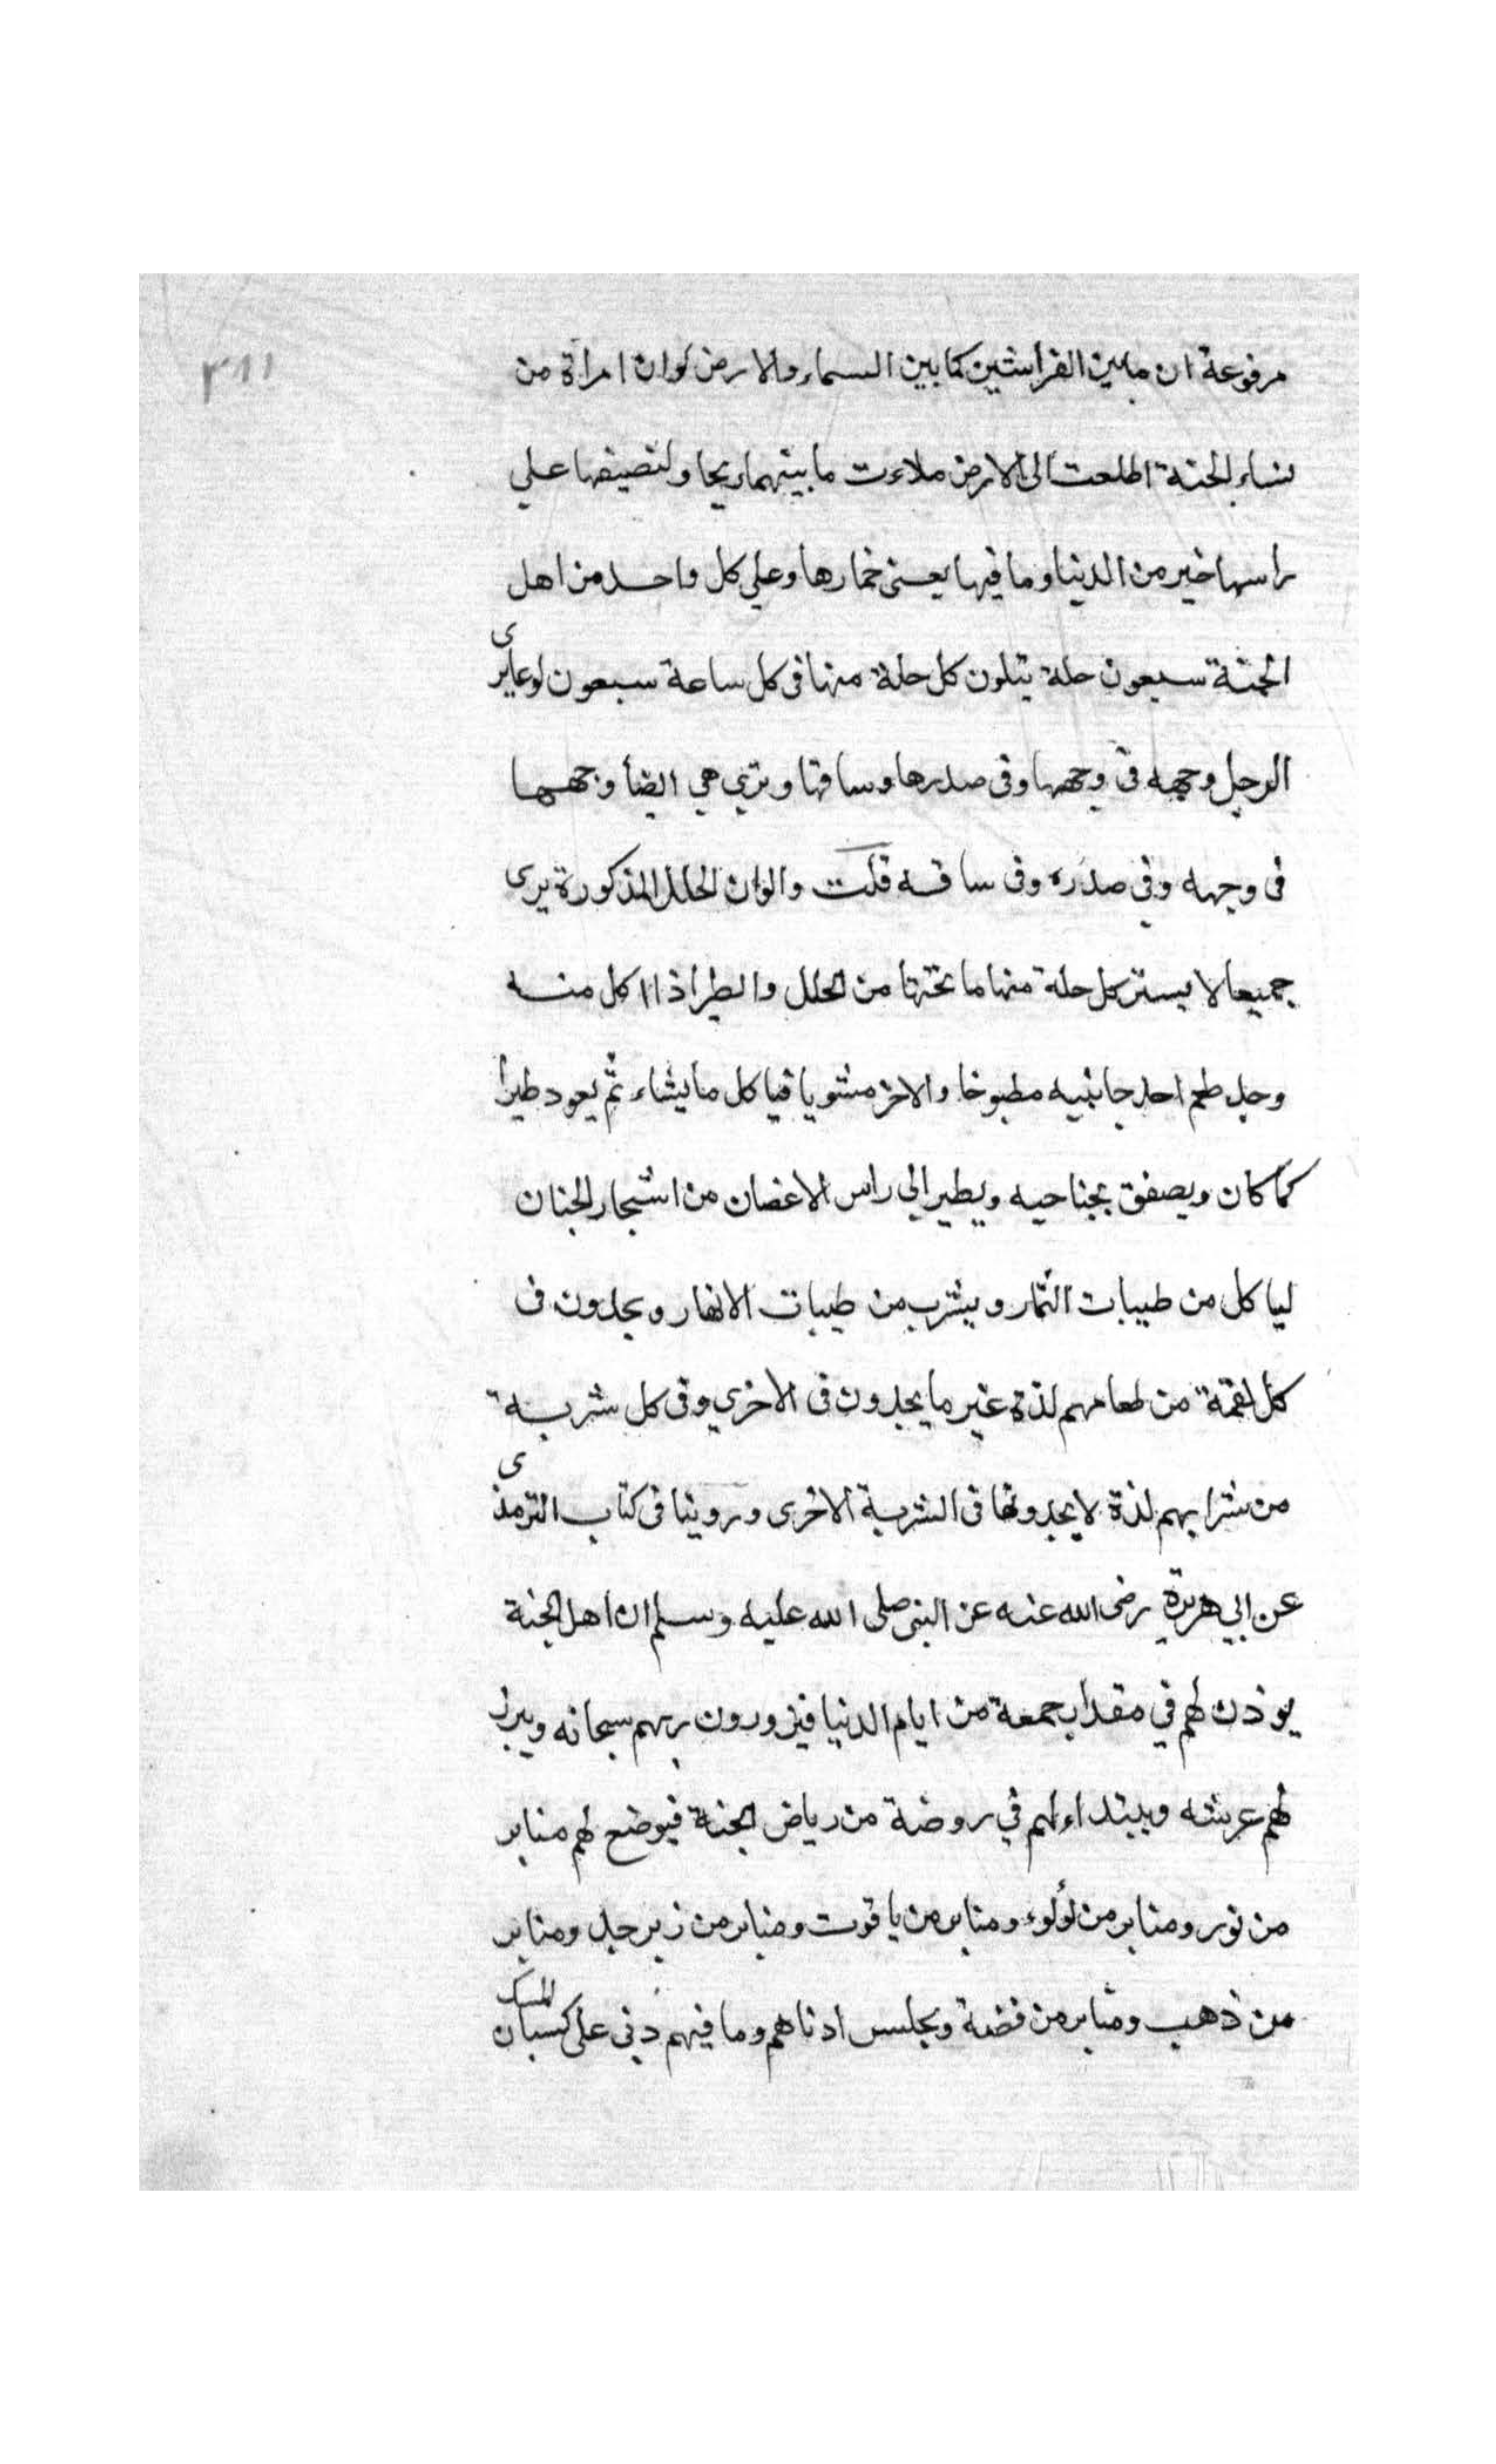 ٣١١
مرفوعة ان مابين الفراشين كما بين السماء والارض لو ان امراة من
نساء الجنة اطلعت الى الارض ملاءت ما بينهما ريحا ولنصيفها علي
راسها خير من الدنيا وما فيها يعنى خمارها وعلي كل واحد من اهل
الجنة سبعون حلة يتلون كل حلة منها فى كل ساعة سبعون لوعا يرى
الرجل وجهه فى وجهها وفى صدرها وساقها وتري هي ايضأ وجهها
فى وجهه وفي صدره وفى ساقه قلت والوان الحلل المذكورة يرى
جميعا لا يستر كل حلة منها ما تحتها من الحلل والطير اذا اكل منه
وجد طعم احد جانبيه مطبوخا والاخر مشويا فياكل ما يشاء ثم يعود طيرا
كما كان ويصفق بجناحيه ويطير الي راس الاغصان من اشجار الجنان
لياكل من طيبات الثمار ويشرب من طيبات الانهار ويجدون فى
كل لقمة من طعامهم لذة غير ما يجدون فى الاخري وفى كل شربة
من شرابهم لذة لا يجدونها فى الشربة الاخرى وروينا فى كتاب الترمذى
عن ابي هريرة رضى الله عنه عن النبى صلى الله عليه وسلم ان اهل الجنة
يوذن لهم في مقدار جمعة من ايام الدنيا فيزورون ربهم سبحانه ويبرز
لهم عرشه ويبتداء لهم في روضة من رياض الجنة فيوضع لهم منابر
من نور ومنابر من لؤلوء ومنابر من ياقوت ومنابر من زبرجد ومنابر
من ذهب ومنابر من فضة ويجلس ادناهم وما فيهم دنى على كسبان المسك